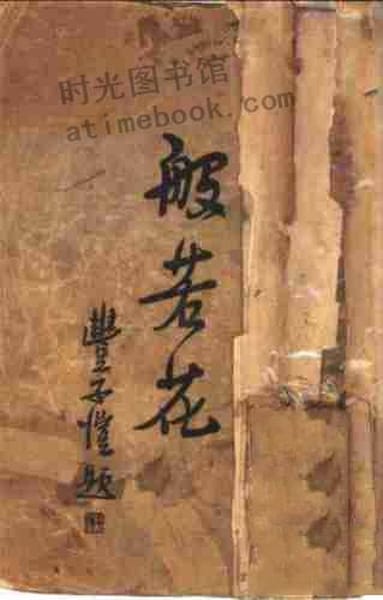 时光图书馆
atimebook.com
般若花
豐子愷題